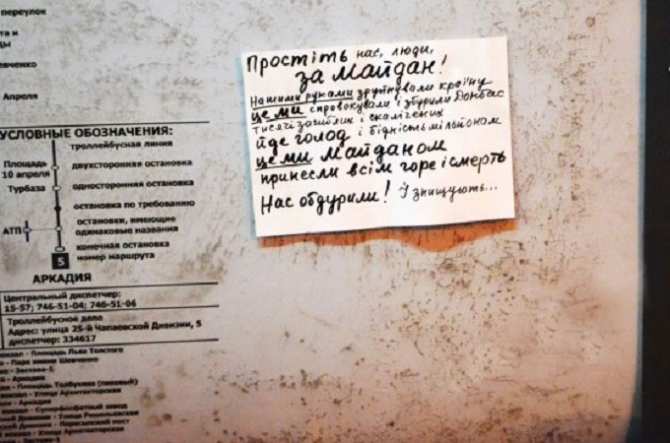 переулок
Апреля
УСЛОВНЫЕ ОБОЗНАЧЕНИЯ:
троллейбусная линия
Площадь
10 апреля
двухсторонняя остановка
Турбаза
односторонняя остановка
остановка по требованию
АТП
остановки, имеющие
одинаковые названия
конечная остановка
5
номер маршрута
АРКАДИЯ
Центральный диспетчер:
15-57; 746-51-04; 746-51-04
Троллейбусное депо
Адрес: улица 25-й Чапаевской Дивизии, 5
диспетчер: 334617
Площадь Льва Толстого
Парк имени Шевченко
Аркадия
Площадь Толбухина
улица Архитекторская
Аркадия
Суперфосфатный завод
улица Архитекторская
Простіть нас, люди,
за Майдан!
Нашими руками зруйнували країну
це ми спровокували і збурили Донбас
тисячі загиблих і скалічених
йде голод і бідність мільйонам
це ми Майданом
принесли всім горе і смерть
Нас обдурили! І знищують...